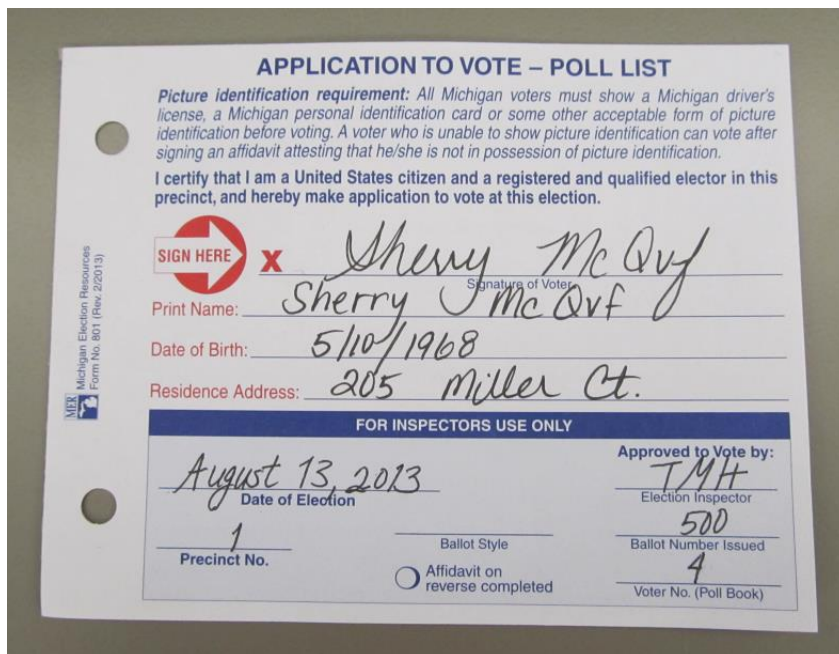 APPLICATION TO VOTE – POLL LIST
Picture identification requirement: All Michigan voters must show a Michigan driver's
license, a Michigan personal identification card or some other acceptable form of picture
identification before voting. A voter who is unable to show picture identification can vote after
signing an affidavit attesting that he/she is not in possession of picture identification.
I certify that I am a United States citizen and a registered and qualified elector in this
precinct, and hereby make application to vote at this election.
SIGN HERE X Sherry McQvf
Signature of Voter
Print Name: Sherry McQvf
Date of Birth: 5/10/1968
Residence Address: 205 Miller Ct.
MER Michigan Election Resources
Form No. 801 (Rev. 2/2013)
FOR INSPECTORS USE ONLY
August 13, 2013
Date of Election
Approved to Vote by:
TMH
Election Inspector
1
Precinct No.
Ballot Style
500
Ballot Number Issued
Affidavit on
reverse completed
4
Voter No. (Poll Book)